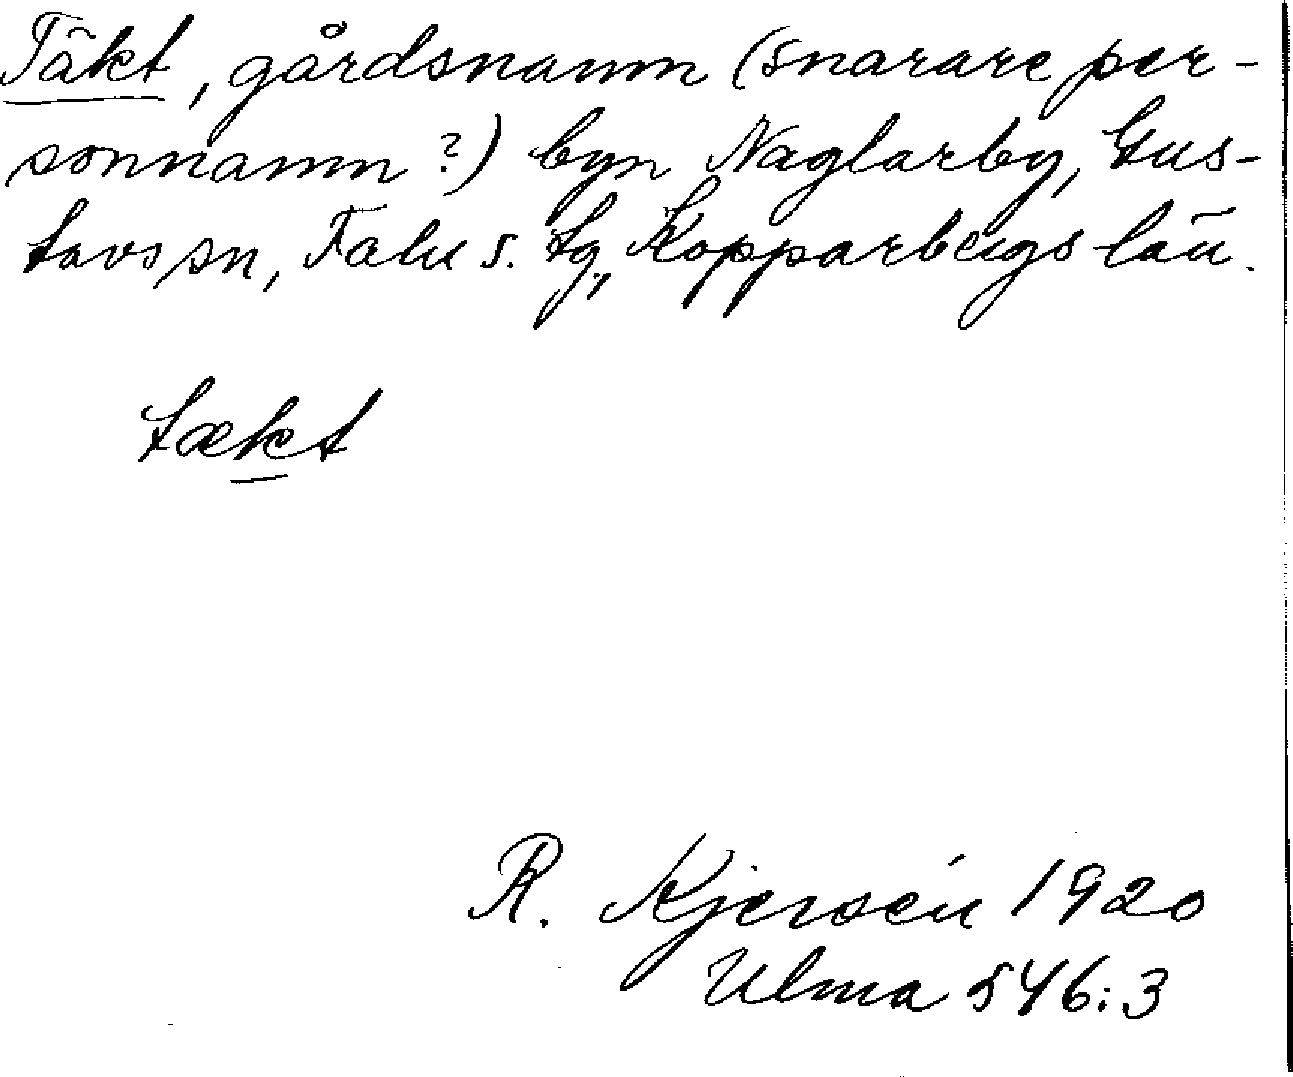 Täkt, gårdsnamn (snarare per-
sonnamn?) byn Naglarby, Gus-
tavs sn, Falu s. tg, Kopparbergs län.
tækt
R. Kjersén 1920
Ulma 546:3